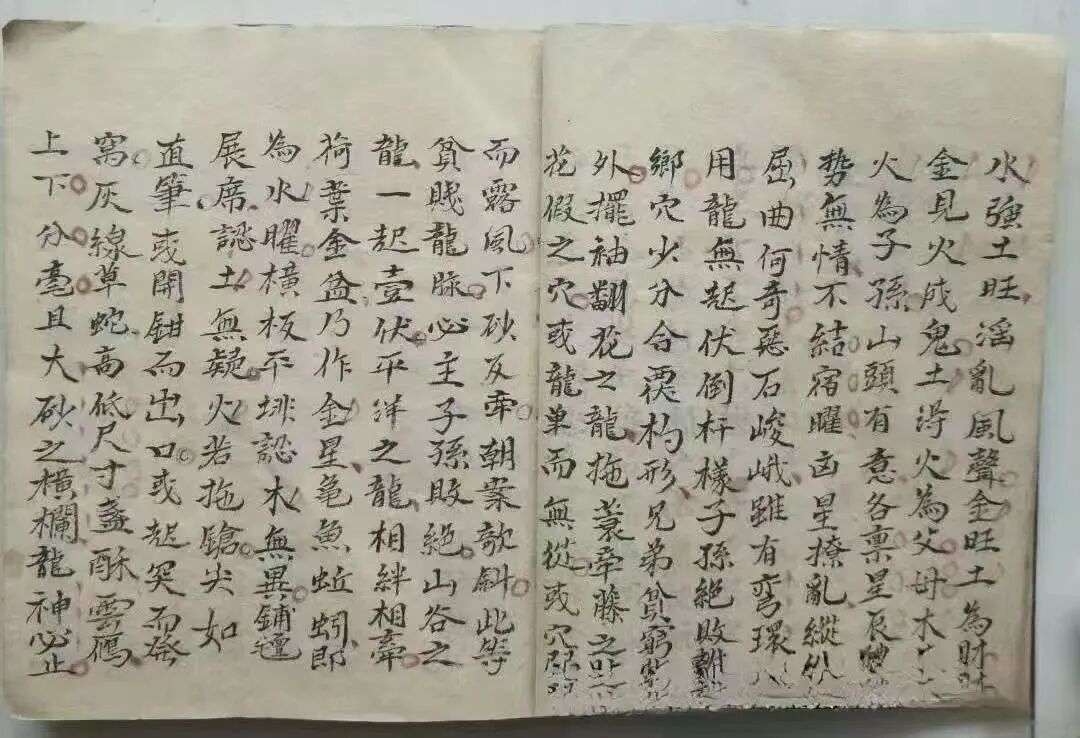 水強土旺淫亂風聲金旺土為財
金見火成鬼土得火為父母木
火為子孫山頭有意各禀星辰
势無情不結宿曜凶星撩亂縱
屈曲何奇惡石峻峨雖有弯環
用龍無起伏倒杆樣子孫絕敗
鄉穴少分合覆杓形兄弟貧窮
外擺袖翻花之龍拖蓑牽藤之
花假之穴或龍单而無從或穴
而露風下砂反牵朝案欹斜此等
貧賤龍脉必主子孫敗絕山谷之
龍一起壹伏平洋之龍相絆相牽
荷葉金盆乃作金星龟魚蚯蚓即
為水曜橫板平排認木無異鋪氊
展席認土無疑火若拖鎗尖如
直筆或開鉗而出口或起突而成
窝灰線草蛇高低尺寸盏酥雲鴈
上下分毫且大砂之横欄龍神必止